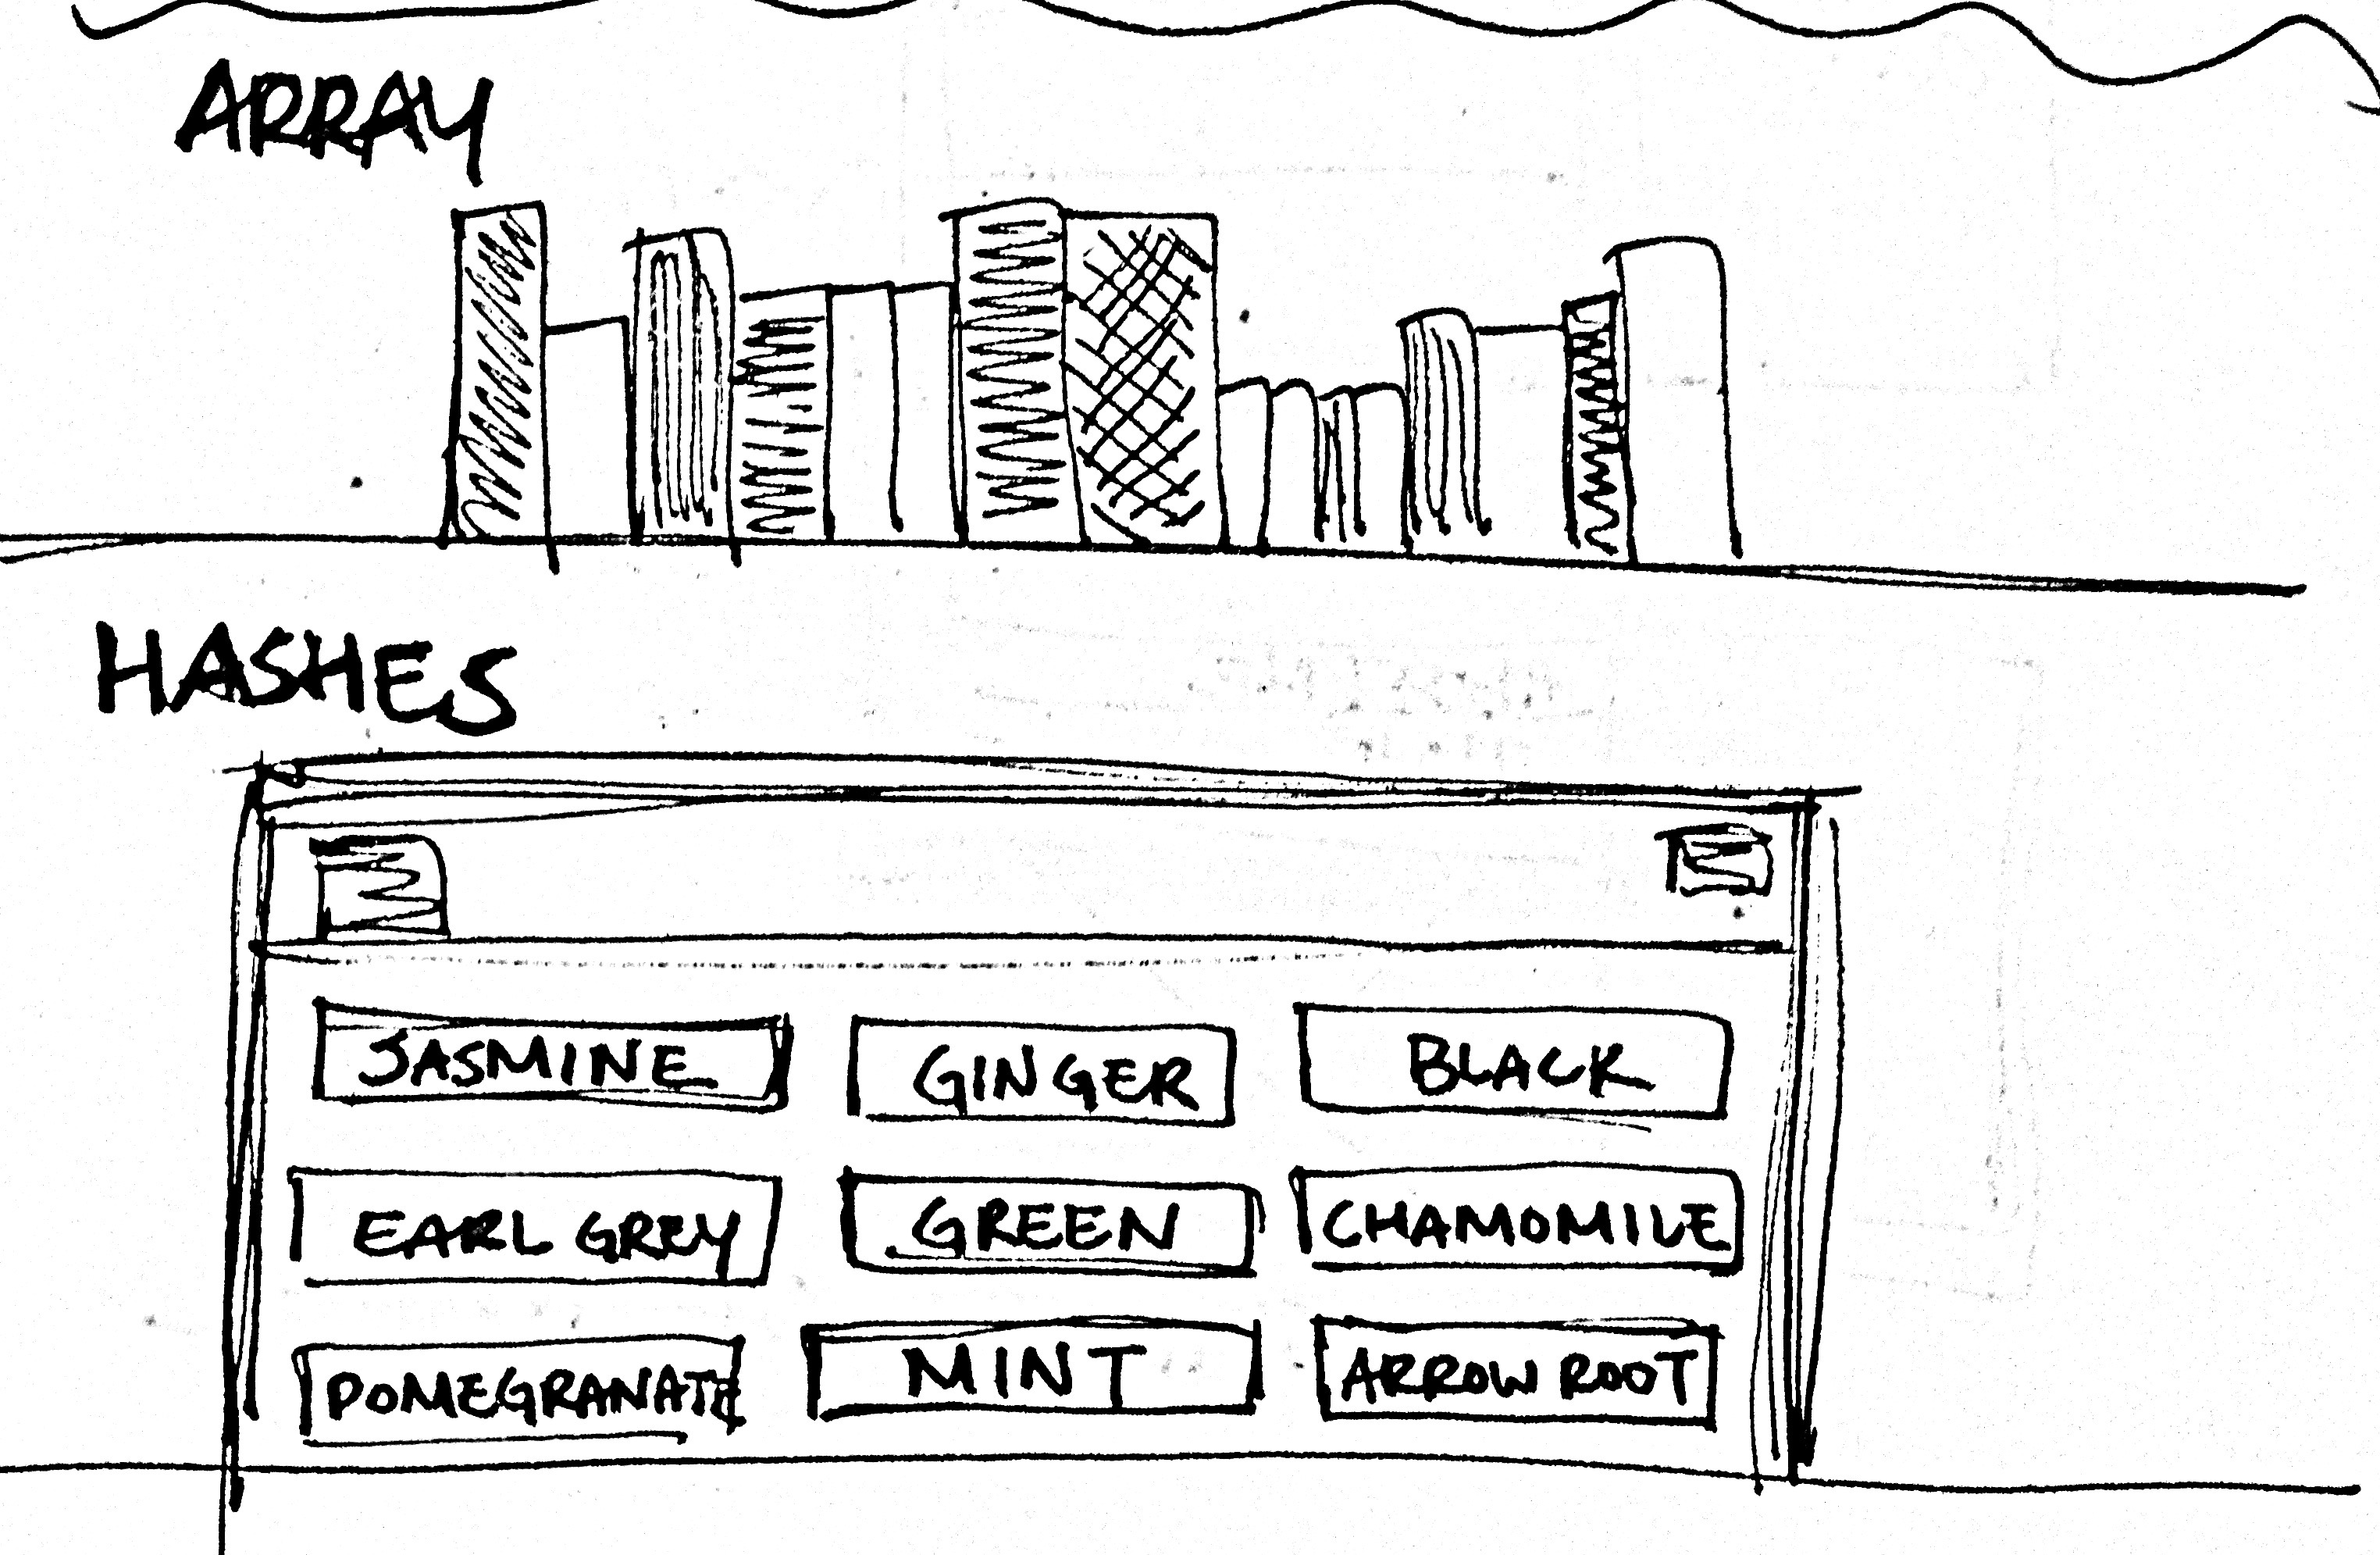 ARRAY
HASHES
JASMINE GINGER BLACK
EARL GREY GREEN CHAMOMILE
POMEGRANATE MINT ARROW ROOT